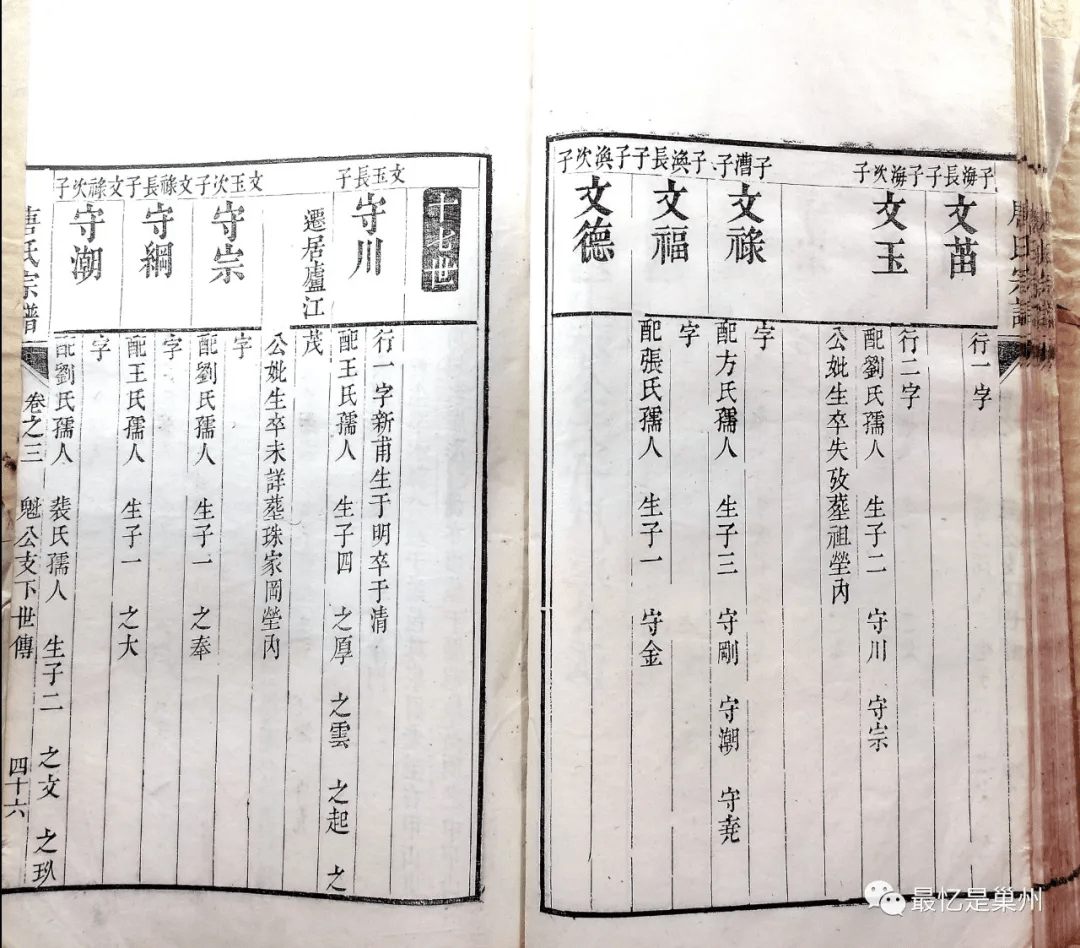 唐氏宗譜
子海長子
文苗
行一字
子海次子
文玉
行二字
配劉氏孺人 生子二 守川 守宗
公妣生卒失攷葬祖塋內
子漕子
文祿
字
配方氏孺人 生子三 守剛 守潮 守堯
子漁長子
文福
字
配張氏孺人 生子一 守金
子漁次子
文德
十七世
文玉長子
守川
行一字新甫生于明卒于清
配王氏孺人 生子四 之厚 之雲 之起 之
茂
遷居廬江
公妣生卒未詳葬珠家岡塋內
文玉次子
守宗
字
配劉氏孺人 生子一 之奉
文祿長子
守綱
字
配王氏孺人 生子一 之大
文祿次子
守潮
字
配劉氏孺人 裴氏孺人 生子二 之文 之玖
唐氏宗譜
卷之三 魁公支下世傳 四十六
最忆是巢州